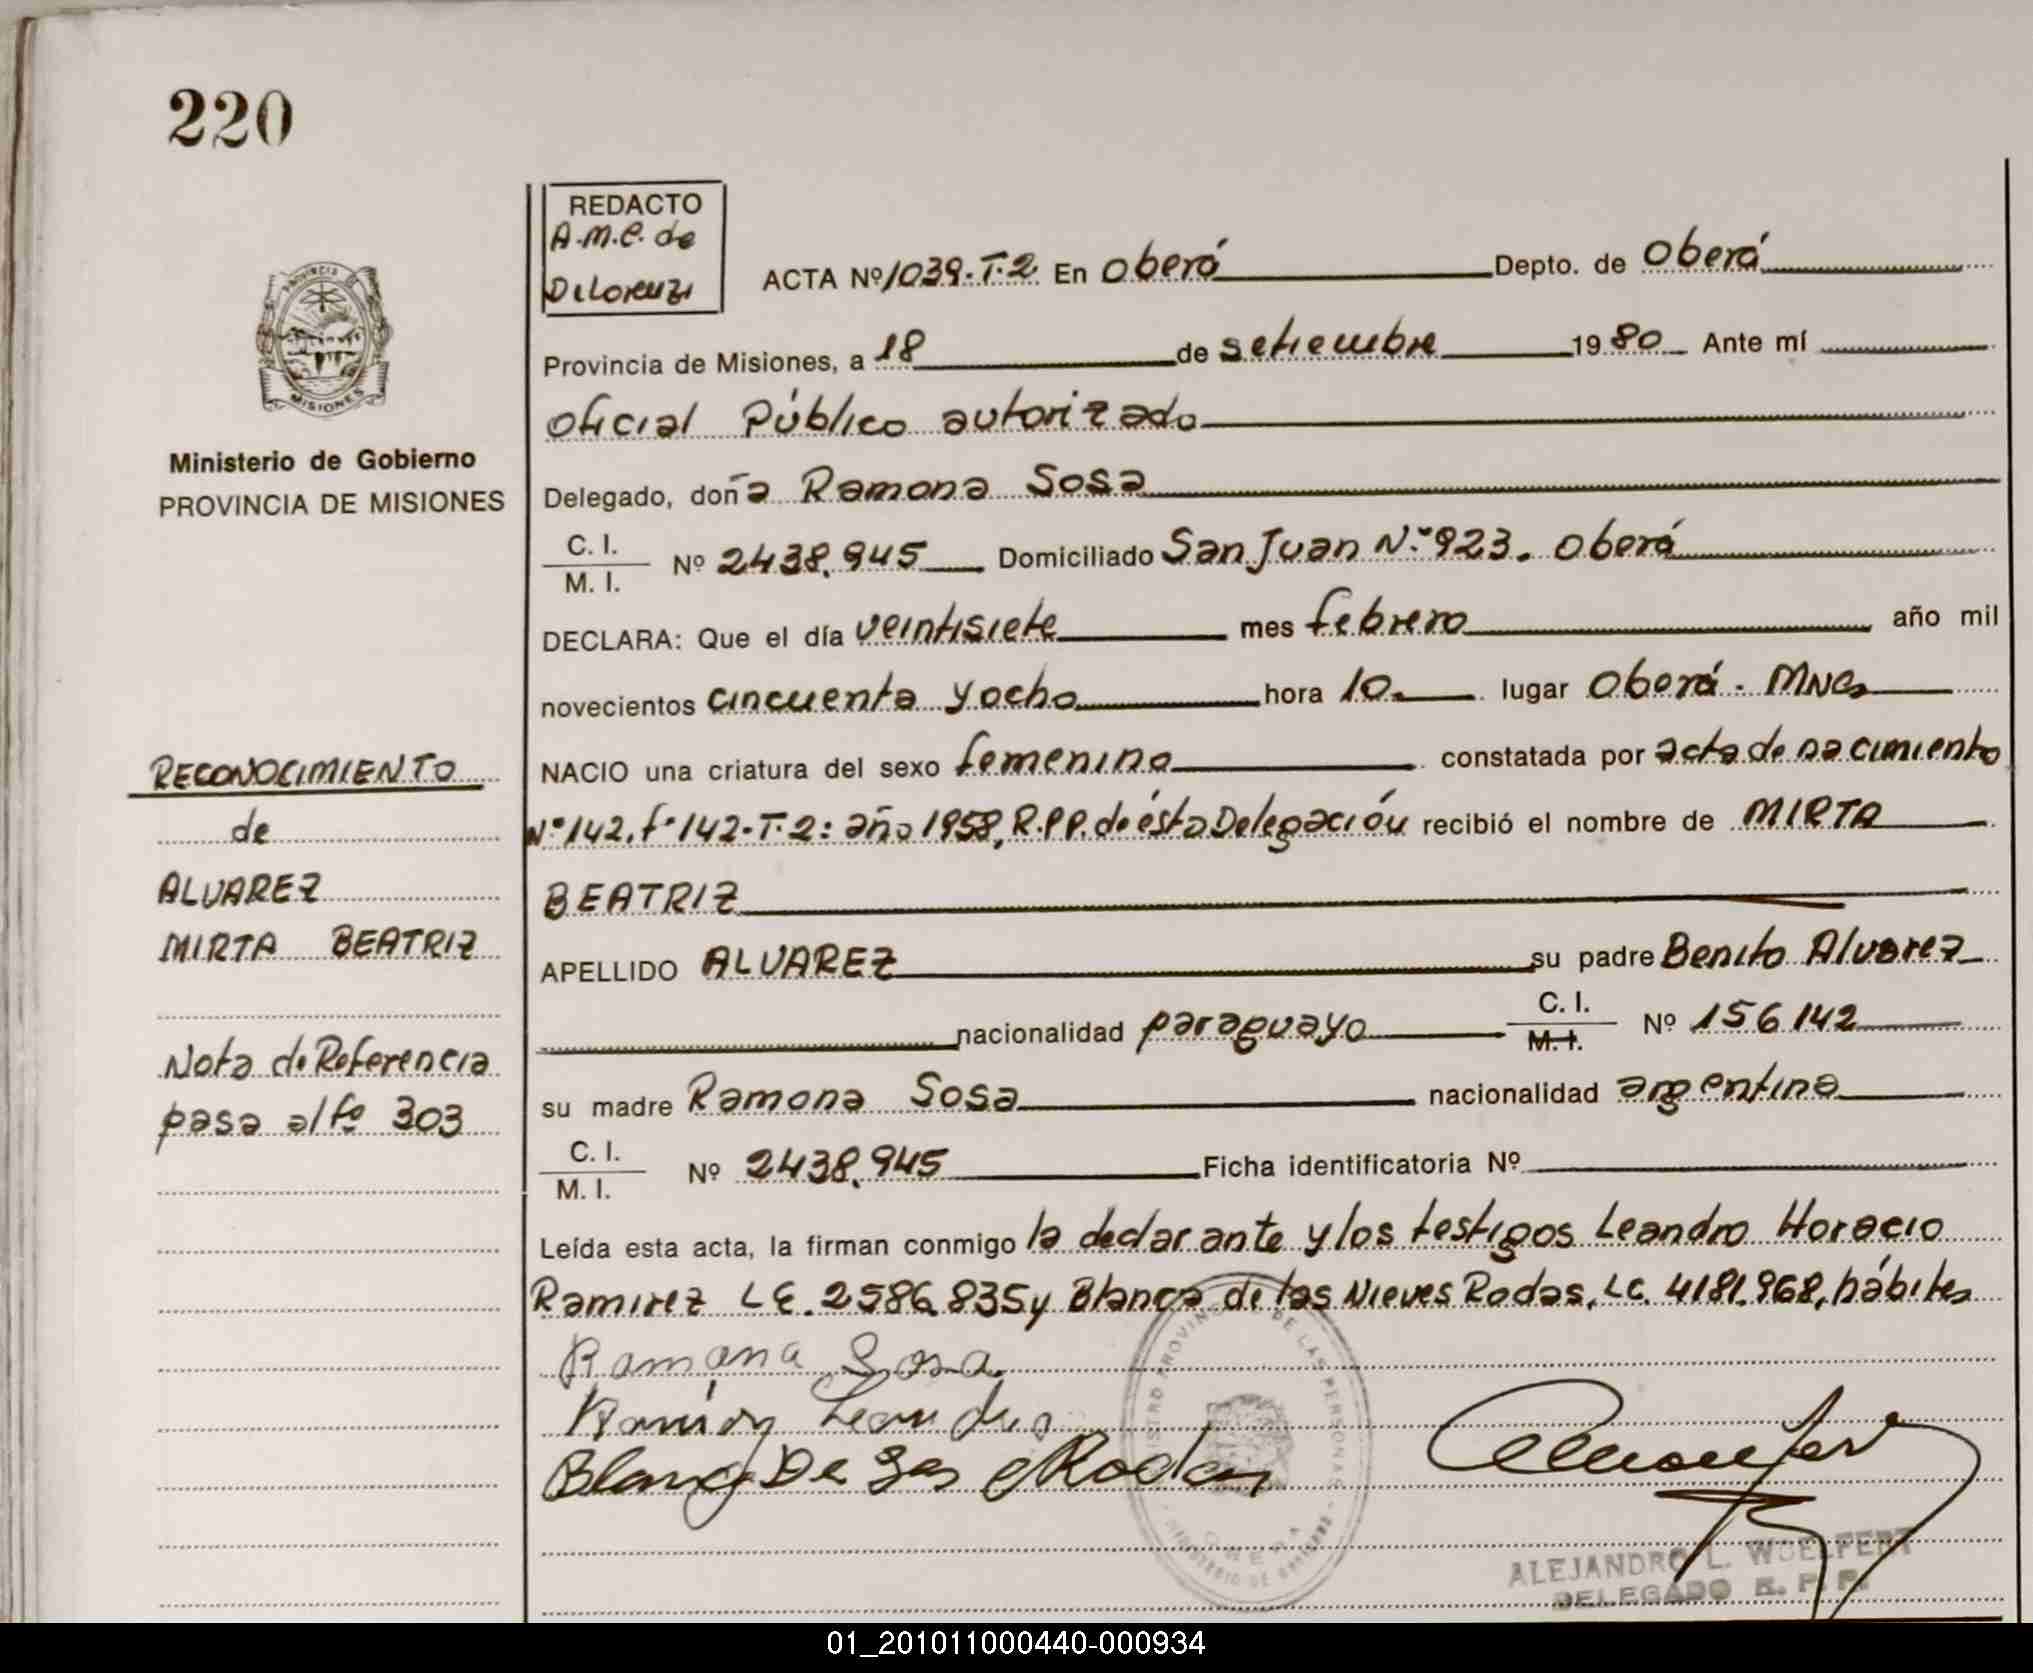 220
REDACTO
A.M.C. de
DeLorenzi
ACTA Nº 1039.T.2 En Oberá Depto. de Oberá
Provincia de Misiones, a 18 de setiembre 1980 Ante mí
Oficial Público autorizado
Delegado, doña Ramona Sosa
C. I.
M. I. Nº 2438.945 Domiciliado San Juan Nº 923. Oberá
DECLARA: Que el día veintisiete mes febrero año mil
novecientos cincuenta y ocho hora 10. lugar Oberá. MNes
NACIO una criatura del sexo femenino constatada por acta de nacimiento
Nº 142. fº 142-T.2: año 1958, R.P.P. de ésta Delegación recibió el nombre de MIRTA
BEATRIZ
APELLIDO ALVAREZ su padre Benito Alvarez
nacionalidad paraguayo C. I. M. I. Nº 156142
su madre Ramona Sosa nacionalidad argentina
C. I.
M. I. Nº 2438.945 Ficha identificatoria Nº
Leída esta acta, la firman conmigo la declarante y los testigos Leandro Horacio
Ramirez LE. 2586.835 y Blanca de las Nieves Rodas, LC. 4181.968, hábiles
Ramona Sosa
Leandro
Blanca De Las Rodas
PROVINCIA
MISIONES
Ministerio de Gobierno
PROVINCIA DE MISIONES
RECONOCIMIENTO
de
ALVAREZ
MIRTA BEATRIZ
Nota de Referencia
pasa al fº 303
REGISTRO PROVINCIAL DE LAS PERSONAS
OBERA
MINISTERIO DE GOBIERNO
ALEJANDRO L. WOELFERT
DELEGADO R. P. P.
01_201011000440-000934